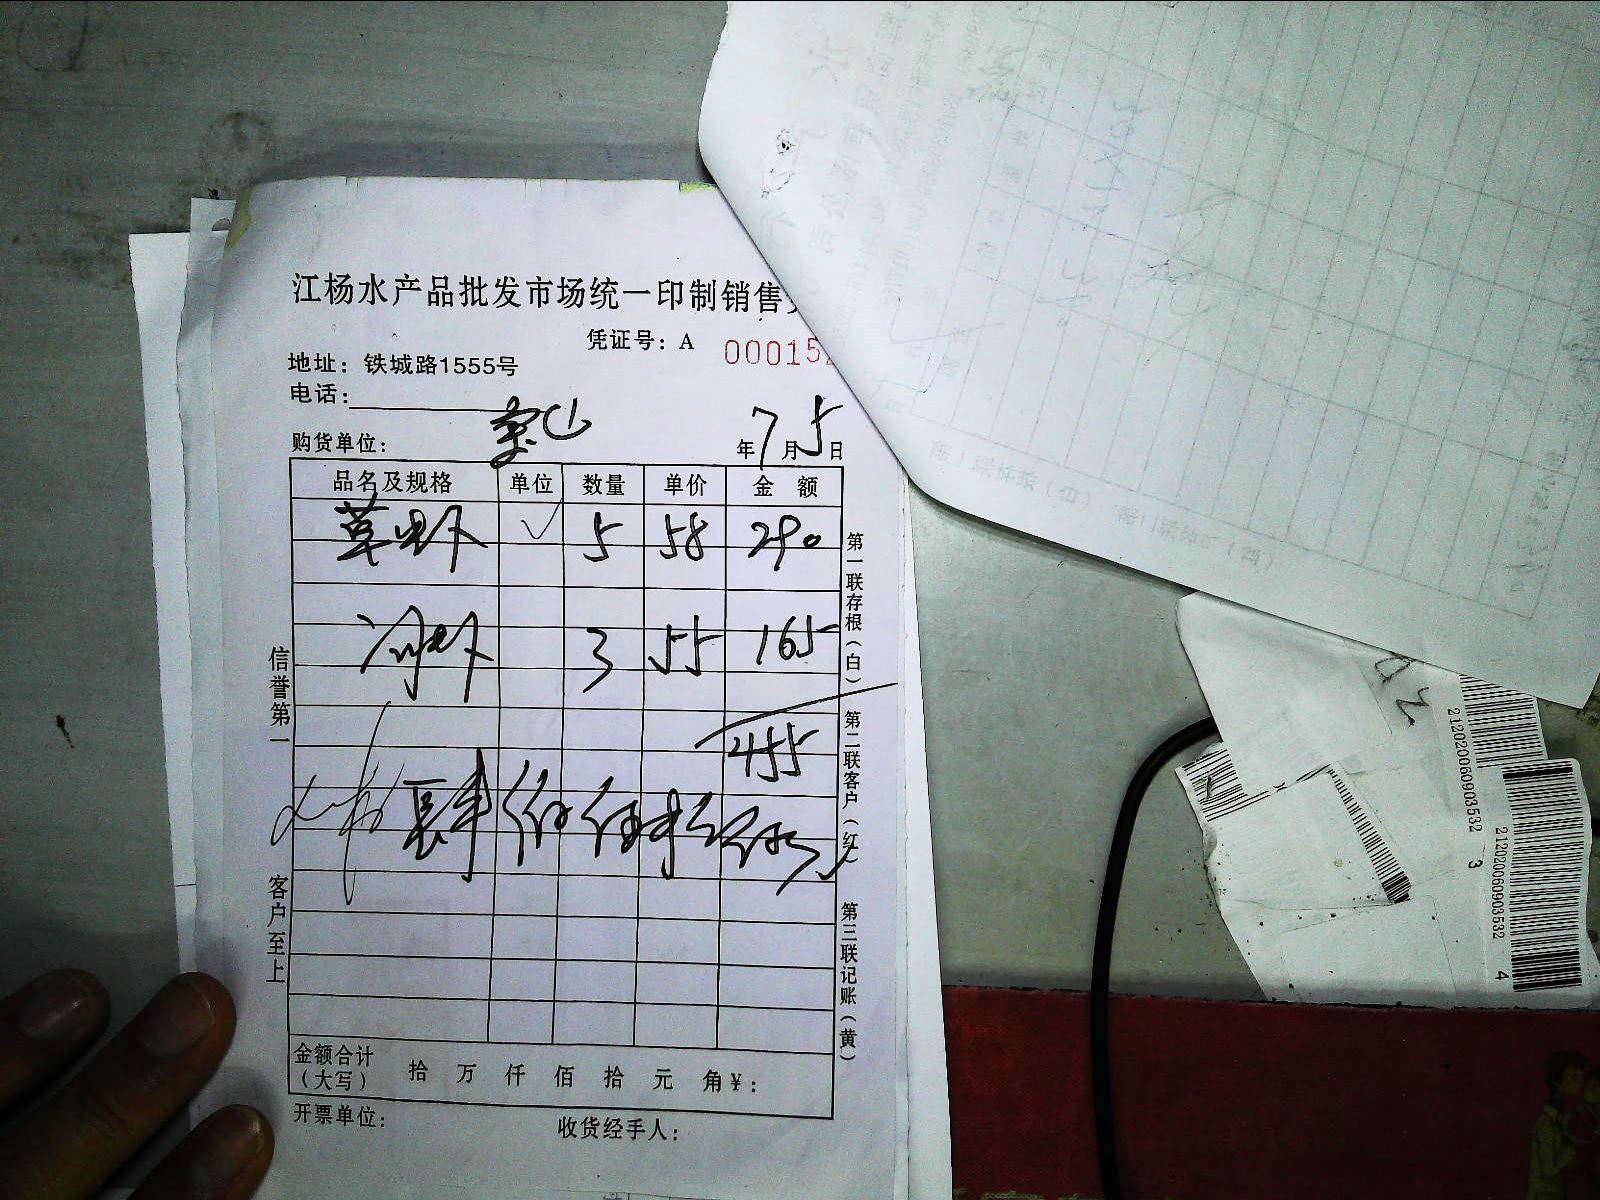 江杨水产品批发市场统一印制销售
凭证号：A 00015
地址：铁城路1555号
电话：
购货单位：
年7月5日
品名及规格 单位 数量 单价 金额
草虾 ✓ 5 58 290
冻虾 3 55 165
455
肆佰伍拾伍元
金额合计（大写） 拾 万 仟 佰 拾 元 角 ¥：
开票单位： 收货经手人：
信誉第一 客户至上
第一联存根（白） 第二联客户（红） 第三联记账（黄）
212020060903532 3
212020060903532 4